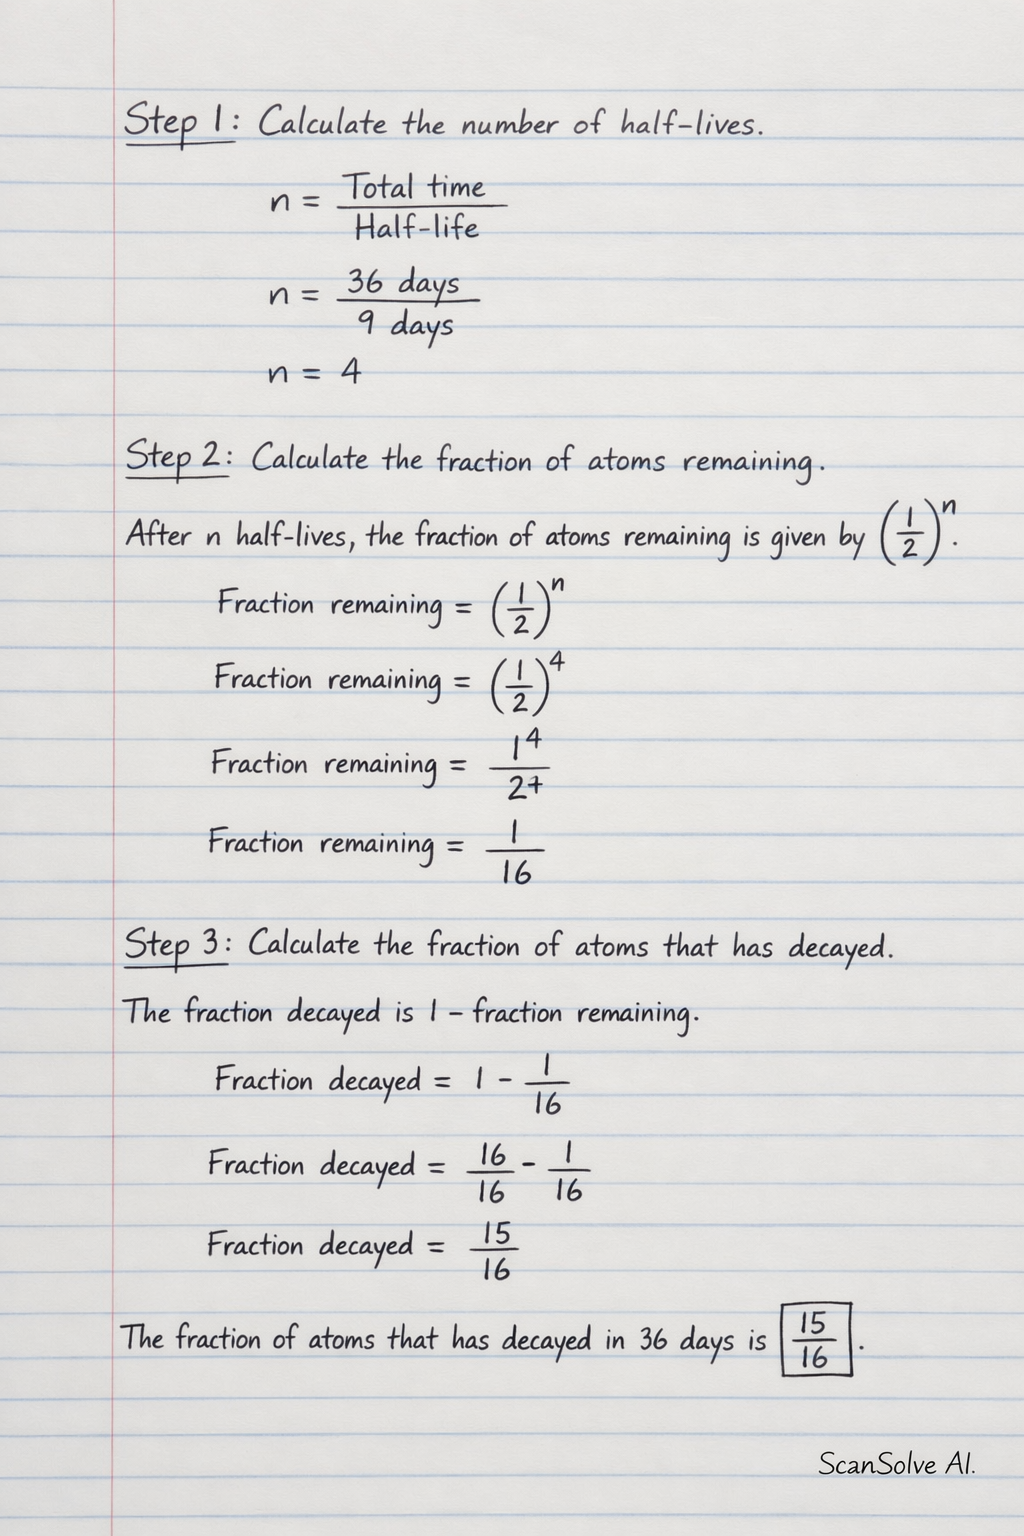 Step 1: Calculate the number of half-lives.
n = Total time / Half-life
n = 36 days / 9 days
n = 4
Step 2: Calculate the fraction of atoms remaining.
After n half-lives, the fraction of atoms remaining is given by (1/2)^n.
Fraction remaining = (1/2)^n
Fraction remaining = (1/2)^4
Fraction remaining = 1^4 / 27
Fraction remaining = 1/16
Step 3: Calculate the fraction of atoms that has decayed.
The fraction decayed is 1 - fraction remaining.
Fraction decayed = 1 - 1/16
Fraction decayed = 16/16 - 1/16
Fraction decayed = 15/16
The fraction of atoms that has decayed in 36 days is 15/16.
ScanSolve AI.